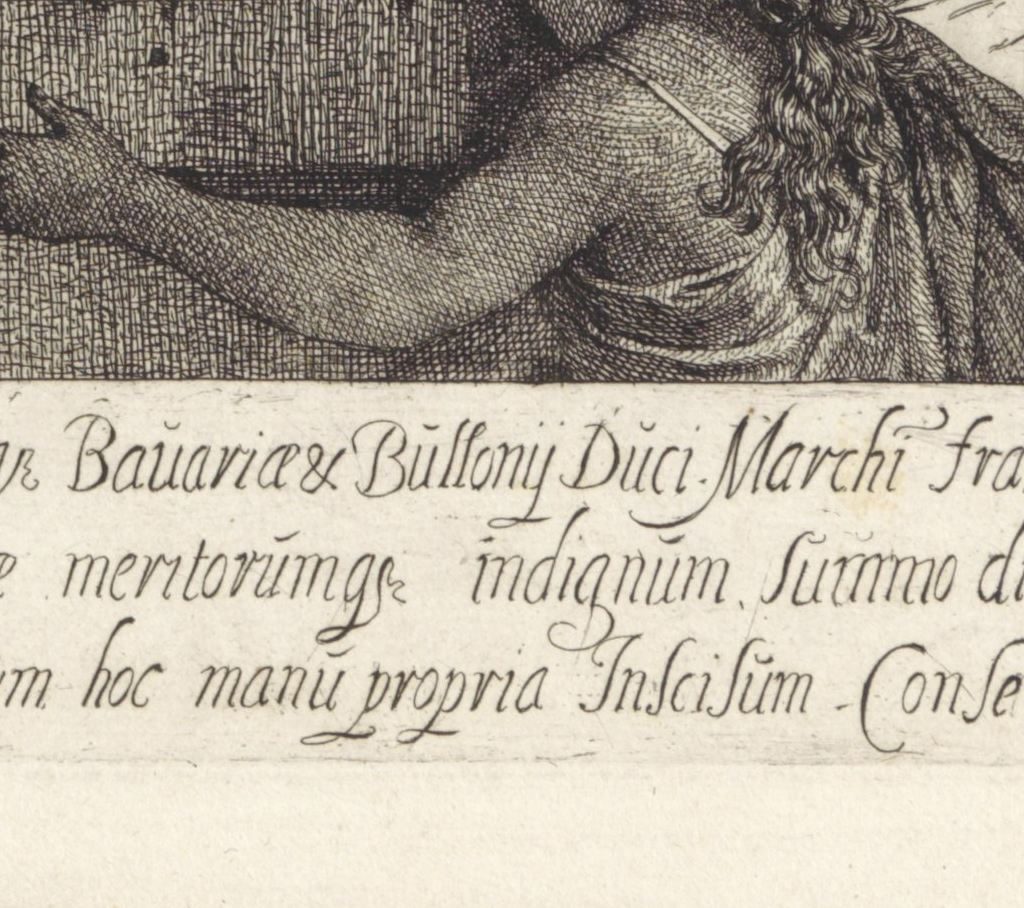 Bavariæ & Bullonij Duci. Marchi fra
meritorúmqꝫ indignúm. Summo di
hoc manú propria Inscisum. Conse